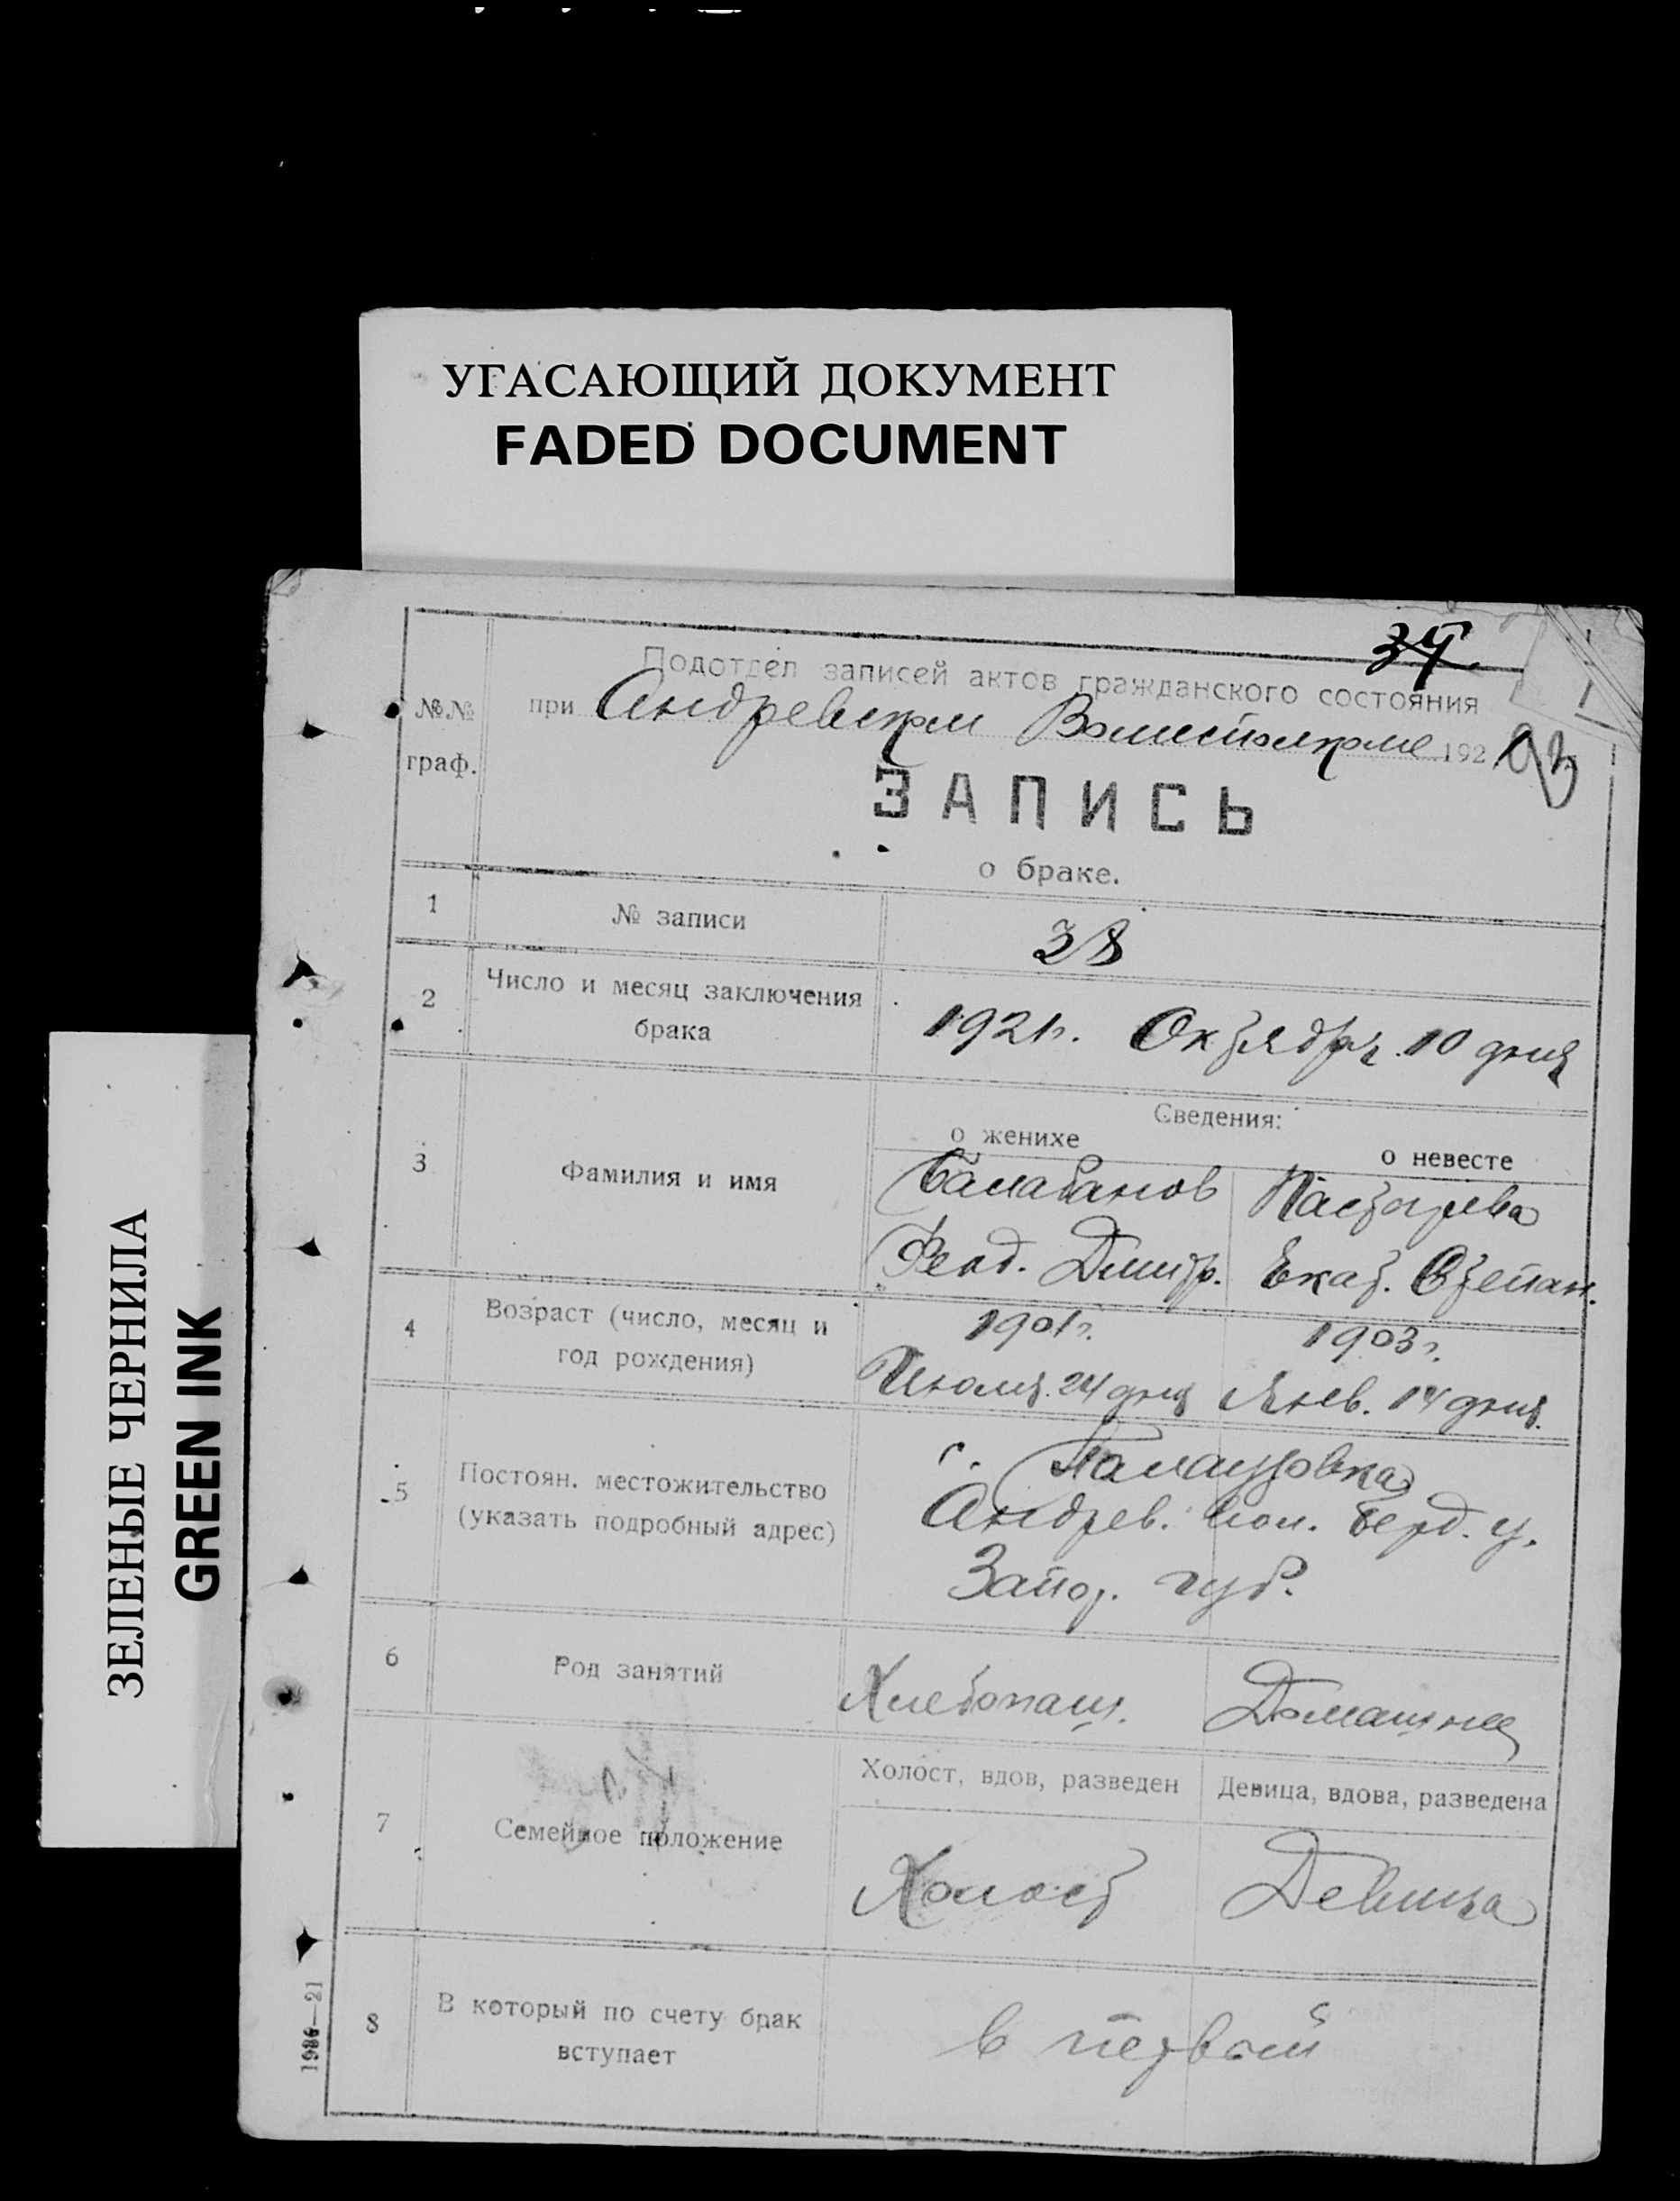 УГАСАЮЩИЙ ДОКУМЕНТ
FADED DOCUMENT
ЗЕЛЕНЫЕ ЧЕРНИЛА
GREEN INK
№№
граф.
Подотдел записей актов гражданского состояния
при Андревском Волисполкоме 192
ЗАПИСЬ
о браке.
1 № записи 38
2 Число и месяц заключения
брака
1921г. Октября 10 дня
Сведения:
о женихе о невесте
3 Фамилия и имя
Балабанов Пастырева
Феод. Дмитр. Екат. Степан.
4 Возраст (число, месяц и
год рождения)
1901г. 1903г.
Июля 24 дня Янв. 14 дня
5 Постоян. местожительство
(указать подробный адрес)
с.
Андрев. вол. Берд. у.
Запор. губ.
6 Род занятий Хлебопаш. Домашняя
7 Семейное положение
Холост, вдов, разведен Девица, вдова, разведена
Холост Девица
8 В который по счету брак
вступает
в первый